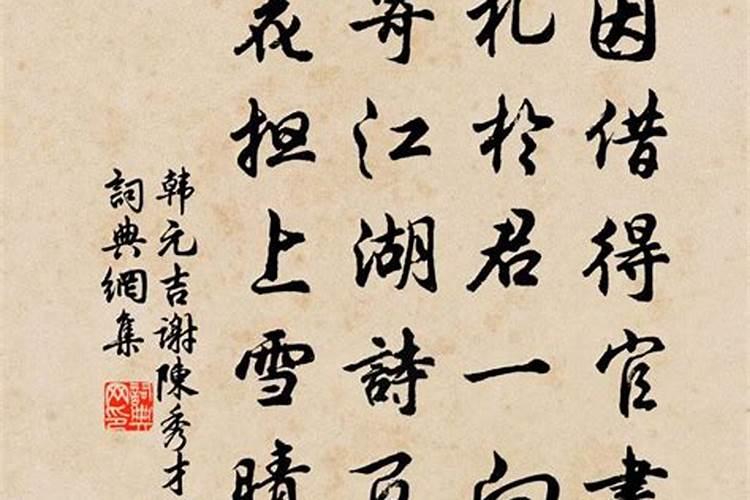 因借得官書
札於君一向
寄江湖詩
花担上雪晴
韩元吉謝陳秀才
詞典網集
詞典网印